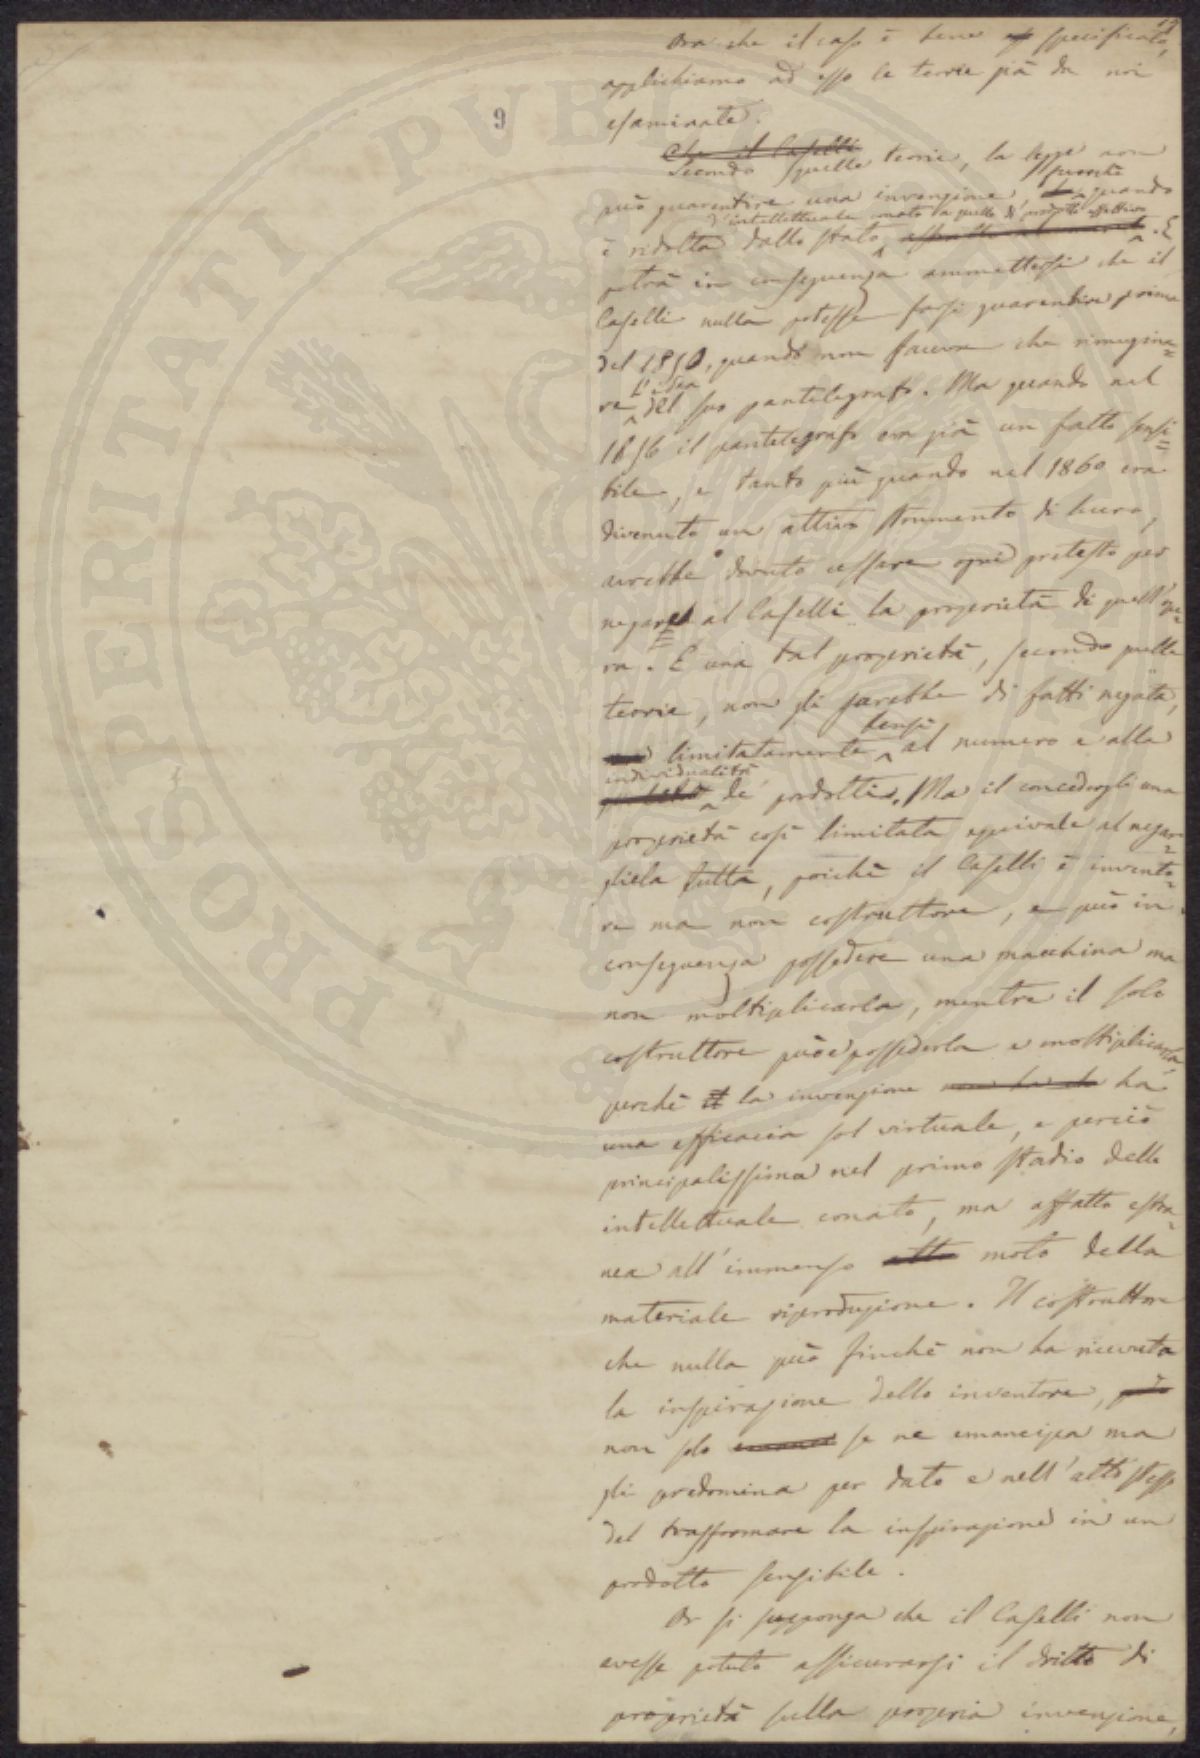 19
Ora che il caso è bene specificato,
applichiamo ad esso le teorie già da noi
esaminate.
9
Che il Caselli
Secondo quelle teorie, la legge non
può guarentire una invenzione quando
è ridotta dallo stato
d'intellettuale conato a quello di prodotto effettivo. E
potrà in conseguenza ammettersi che il
Caselli nulla potesse farsi guarentire prima
del 1850, quando non faceva che rimugina=
re l'idea del suo pantelegrafo. Ma quando nel
1856 il pantelegrafo era già un fatto sensi=
bile, e tanto più quando nel 1860 era
divenuto un attivo strumento di lucro,
avrebbe dovuto cessare ogni pretesto per
negare al Caselli la proprietà di quell'ope=
ra. E una tal proprietà, secondo quelle
teorie, non gli sarebbe di fatti negata,
limitatamente bensì al numero e alla
individualità de' prodotti. Ma il concedergli una
proprietà così limitata equivale al negar=
gliela tutta, poichè il Caselli è invento=
re ma non costruttore, e può in
conseguenza possedere una macchina ma
non moltiplicarla, mentre il solo
costruttore può e possederla e moltiplicarla,
perchè la invenzione ha
una efficacia sol virtuale, e perciò
principalissima nel primo stadio dello
intellettuale conato, ma affatto estra=
nea all'immenso moto della
materiale riproduzione. Il costruttore
che nulla può finchè non ha ricevuta
la inspirazione dello inventore,
non solo se ne emancipa ma
gli predomina per dato e nell'atto stesso
del trasformare la inspirazione in un
prodotto sensibile.
Or si supponga che il Caselli non
avesse potuto assicurarsi il dritto di
proprietà sulla propria invenzione,
PROSPERITATI PVBLICAE